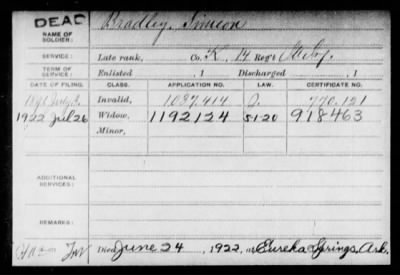 DEAD
NAME OF SOLDIER: Bradley, Simeon
SERVICE: Late rank, Co. K, 14 Reg't
TERM OF SERVICE: Enlisted , 1 Discharged , 1
DATE OF FILING. CLASS. APPLICATION NO. LAW. CERTIFICATE NO.
Invalid, 1037.414 770.121
1922 Jul 26 Widow, 1192124 5-1-20 918463
Minor,
ADDITIONAL SERVICES:
REMARKS:
Died June 24, 1922, at Eureka Springs, Ark.